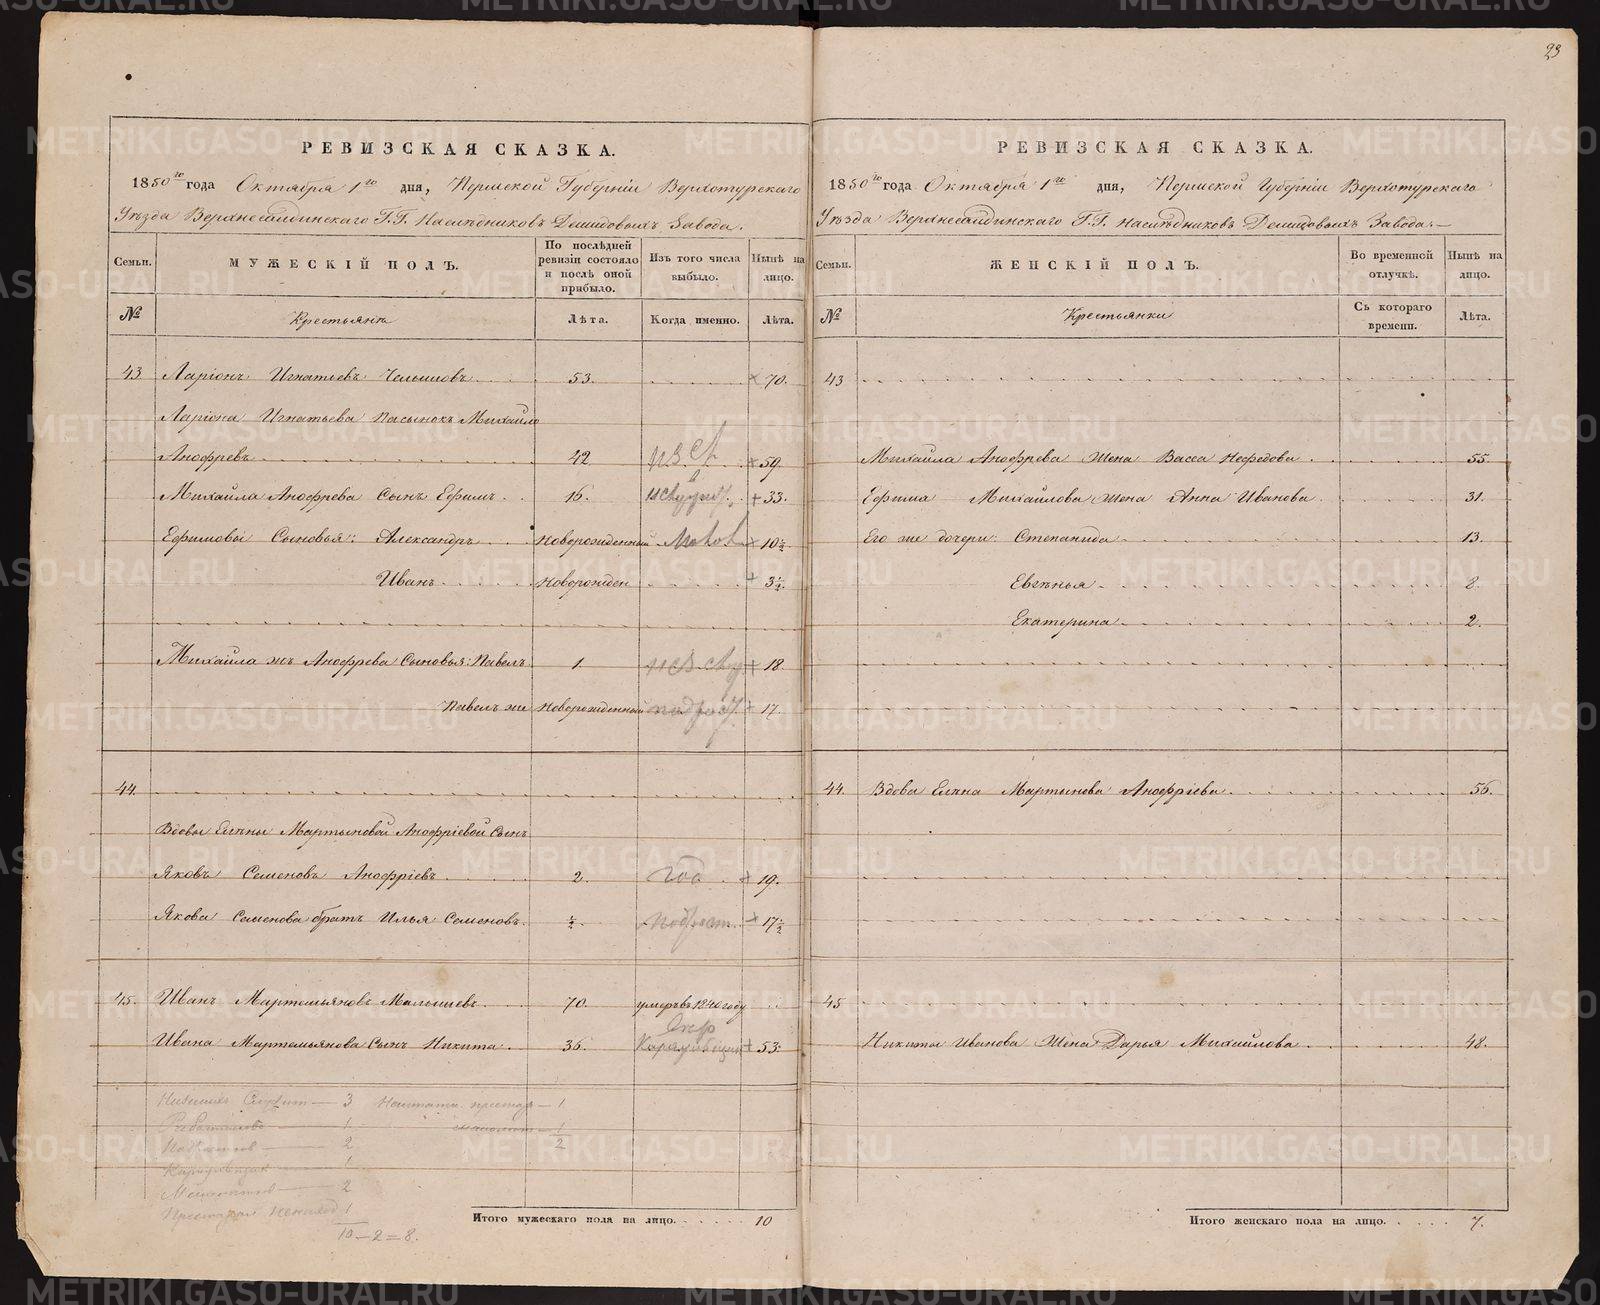 23
РЕВИЗСКАЯ СКАЗКА.
1850го года Октября 1го дня, Пермской Губерніи Верхотурскаго
Уѣзда Верхнесалдинскаго Г.Г. Наслѣдниковъ Демидовыхъ Завода.
Семьи.
МУЖЕСКІЙ ПОЛЪ.
По послѣдней ревизіи состояло и послѣ оной прибыло.
Изъ того числа выбыло.
Нынѣ на лицо.
№
Крестьяня
Лѣта.
Когда именно.
Лѣта.
43 Ларіонъ Игнатьевъ 53. 70.
Ларіона Игнатьева пасынокъ Михайло
Анофревъ 42. 59.
Михайла Анофрева Сынъ Ефимъ 16. + 33.
Ефимовы Сыновья: Александръ Новорожденный 10½
Иванъ Новорожден + 3½
Михайла жъ Анофрева Сыновья: Павелъ 1 + 18.
Павелъ же Новорожденный 17.
44.
Вдовы Елены Мартыновой Анофріевой Сынъ
Яковъ Семеновъ Анофріевъ 2. год 19.
Якова Семенова братъ Илья Семеновъ. ½ 17½
45. Иванъ Мартемьяновъ Малышевъ 70. умеръ въ 1840 году
Ивана Мартемьянова Сынъ Никита 36. + 53.
3 1
1 1
2 2
1
2
1
10 – 2 = 8.
Итого мужескаго пола на лицо. 10
РЕВИЗСКАЯ СКАЗКА.
1850го года Октября 1го дня, Пермской Губерніи Верхотурскаго
Уѣзда Верхнесалдинскаго Г.Г. Наслѣдниковъ Демидовыхъ Завода.
Семьи.
ЖЕНСКІЙ ПОЛЪ.
Во временной отлучкѣ.
Нынѣ на лицо.
№
Крестьянки
Съ котораго времени.
Лѣта.
43
Михайла Анофрева Жена Васса Нефедова 55.
Ефима Михайлова жена Анна Иванова 31.
Его же дочери: Степанида 13.
Евгѣнья 8.
Екатерина 2.
44. Вдова Елена Мартынова Анофріева 56.
45
Никиты Иванова Жена Дарья Михайлова 48.
Итого женскаго пола на лицо. 7.
METRIKI.GASO-URAL.RU